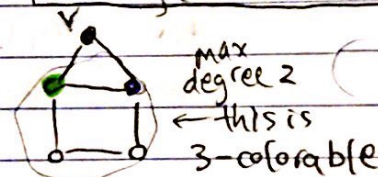 v
max
degree 2
← this is
3-colorable